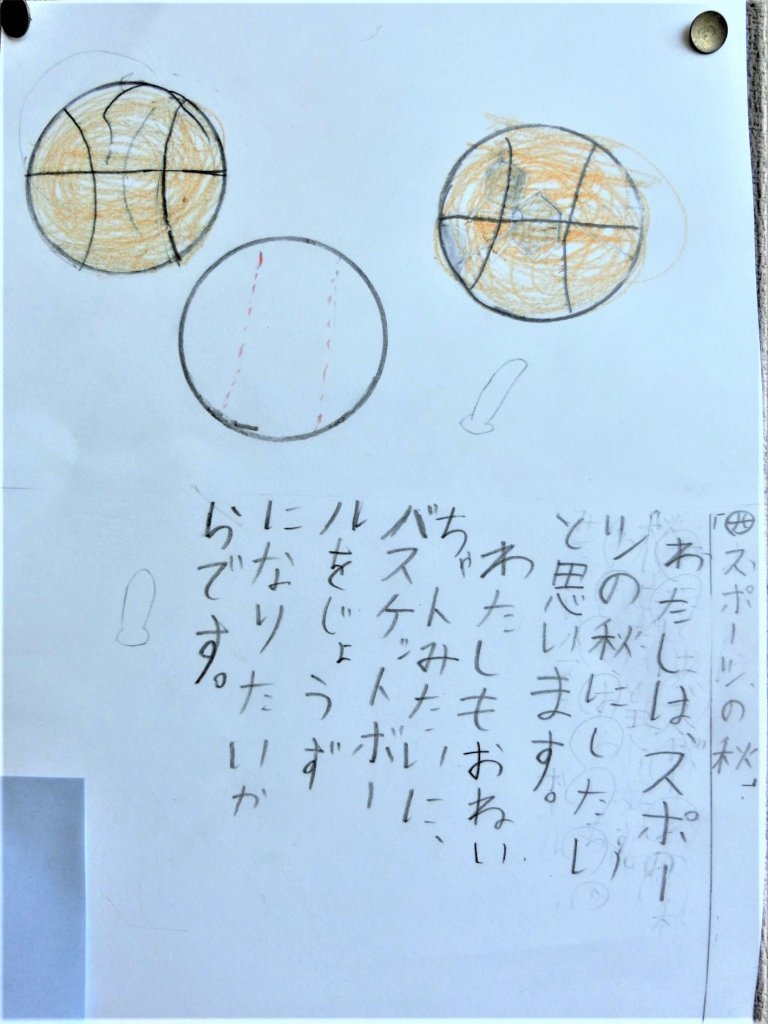 「スポーツの秋」
わたしは、スポー
ツの秋にしたい
と思います。
わたしもおねい
ちゃんみたいに、
バスケットボー
ルをじょうず
になりたいか
らです。